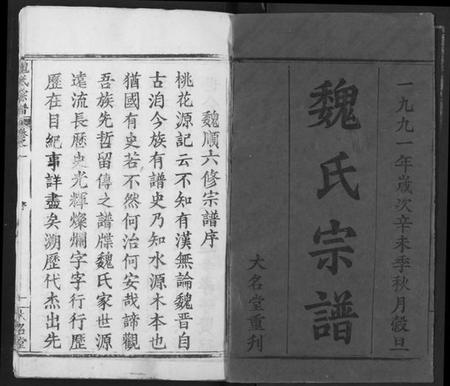 一九九一年歲次辛未季秋月穀旦
魏氏宗譜
大名堂重刋
魏順六修宗譜序
桃花源記云不知有漢無論魏晋自
古洎今族有譜史乃知水源木本也
猶國有史若不然何治何安哉諦觀
吾族先哲留傳之譜牒魏氏家世源
遠流長歷史光輝燦爛字字行行歷
歷在目紀事詳盡矣溯歷代杰出先
魏氏宗譜
大名堂